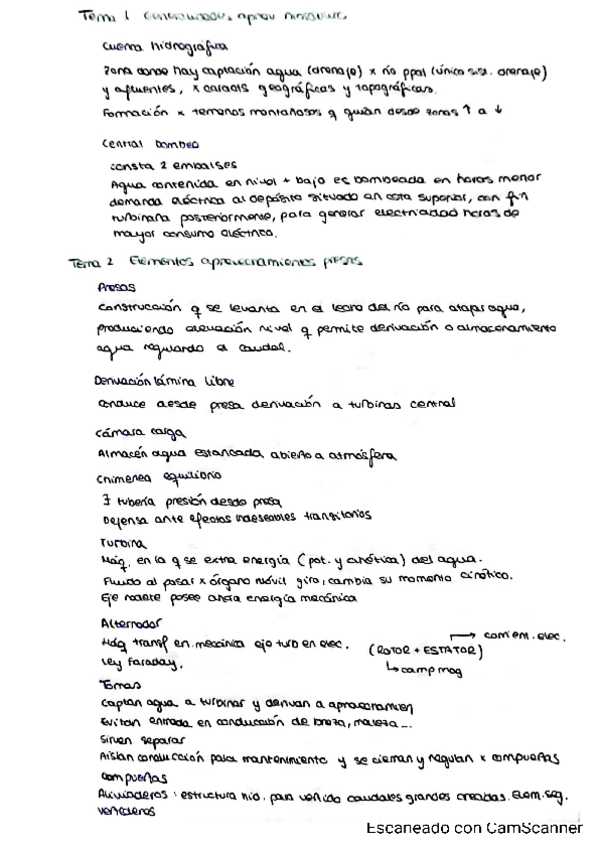 Tema 1 aprov
Cuenca hidrográfica
Zona donde hay captación agua (drenaje) x río ppal (único sist. drenaje)
y afluentes, x caracts geográficas y topográficas.
Formación x terrenos montañosos q guían desde zonas ↑ a ↓
Central bombeo
consta 2 embalses
Agua contenida en nivel + bajo es bombeada en horas menor
demanda eléctrica al depósito situado en cota superior, con fin
turbinarla posteriormente, para generar electricidad horas de
mayor consumo eléctrico.
Tema 2 Elementos aprovechamientos presas
Presas
Construcción q se levanta en el lecho del río para atajar agua,
produciendo elevación nivel q permite derivación o almacenamiento
agua regulando el caudal.
Derivación lámina libre
conduce desde presa derivación a turbinas central
Cámara carga
Almacén agua estancada abierto a atmósfera
Chimenea equilibrio
∃ tubería presión desde presa
Defensa ante efectos indeseables transitorios
Turbina
Máq. en la q se extrae energía (pot. y cinética) del agua.
Fluido al pasar x órgano móvil giro, cambia su momento cinético.
Eje rodete posee energía mecánica
Alternador
Máq transf en. mecánica eje turb en elec. (ROTOR + ESTATOR) → corr em. elec.
Ley Faraday. ↳ camp mag
Tomas
Captan agua a turbinar y derivan a
Evitan entrada en conducción de broza, maleza...
Sirven separar
Aíslan conducción para mantenimiento y se cierran y regulan x compuertas
Compuertas
Aliviaderos: estructura hid. para vertido caudales grandes crecidas. Elem. seg.
Vertederos
Escaneado con CamScanner